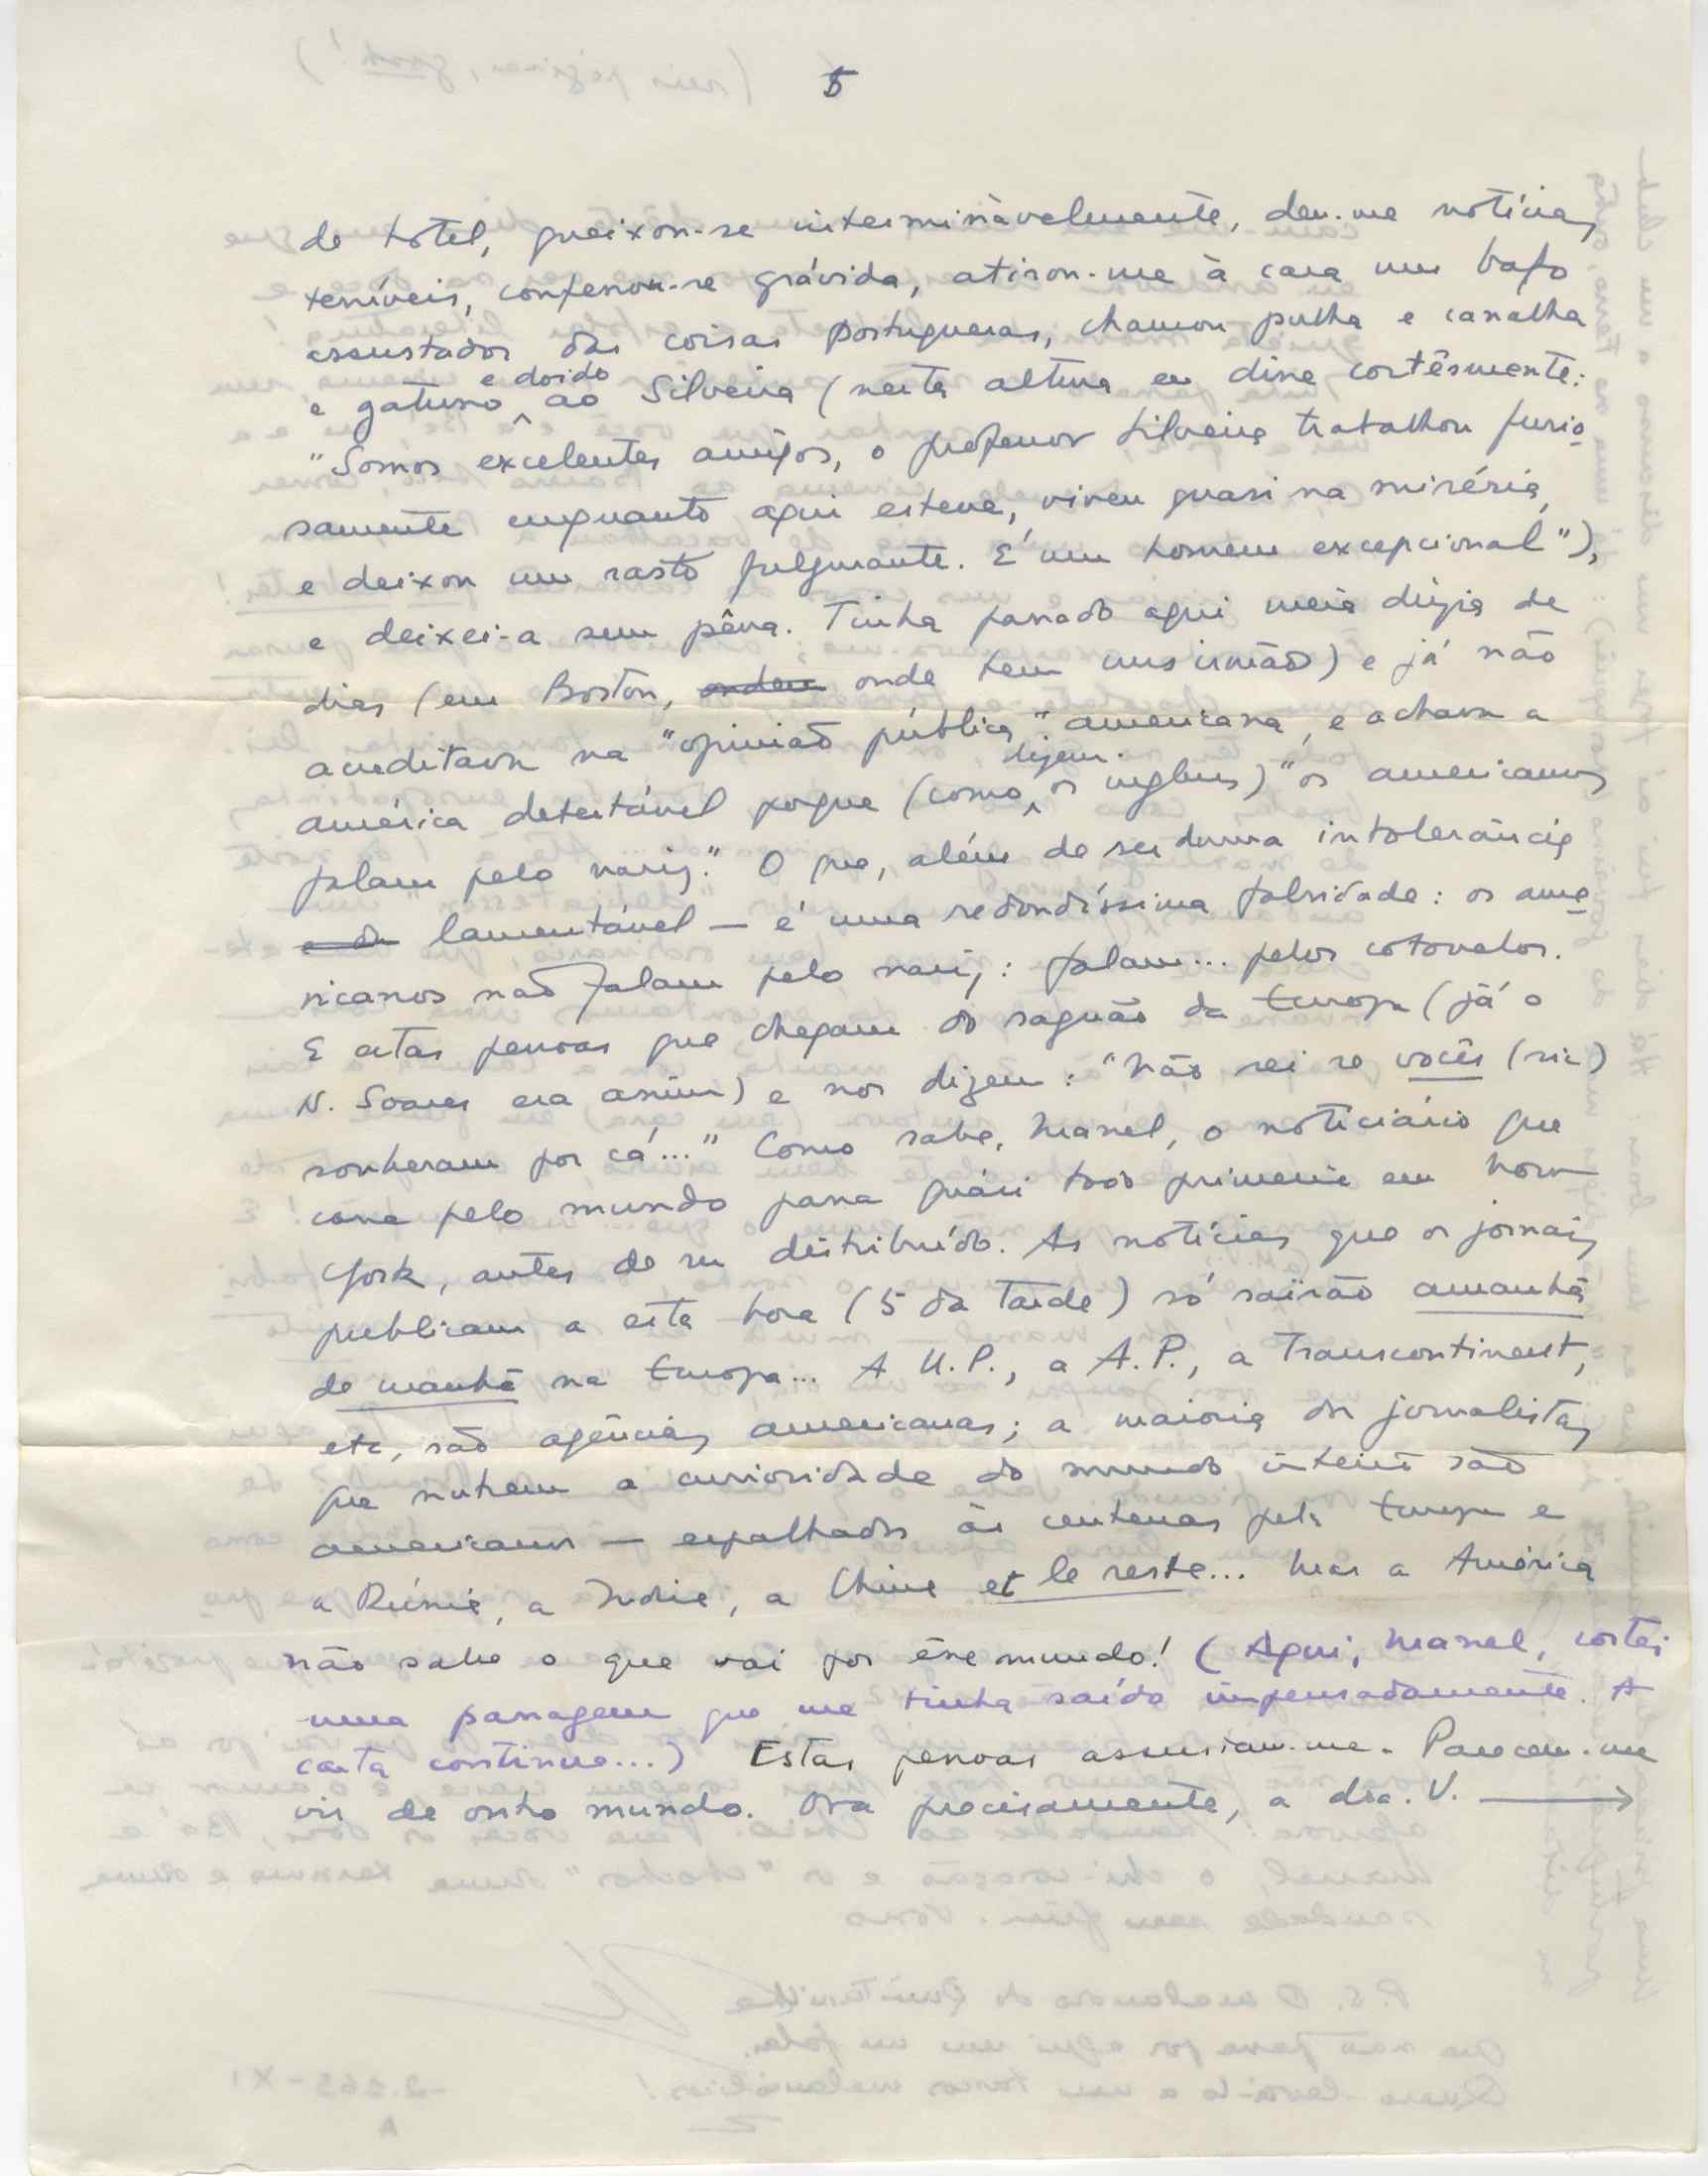 5
do hotel, queixou-se interminàvelmente, deu-me notícias
terríveis, confessou-se grávida, atirou-me à cara um bafo
assustador das coisas portuguesas, chamou pulha e canalha
e gatuno e doido ao Silveira (nesta altura eu disse cortêsmente:
"Somos excelentes amigos, o professor Silveira trabalhou furio-
samente enquanto aqui esteve, viveu quasi na miséria,
e deixou um rasto fulgurante. É um homem excepcional"),
e deixei-a sem pêna. Tinha passado aqui meia dúzia de
dias (em Boston, onde tem uns irmãos) e já não
acreditava na "opinião pública" americana, e achava a
américa detestável porque (como dizem os ingleses) "os americanos
falam pelo nariz." O que, além de ser duma intolerância
lamentável — é uma redondíssima falsidade: os ame-
ricanos não falam pelo nariz: falam... pelos cotovelos.
E estas pessoas que chegam do saguão da Europa (já o
N. Soares era assim) e nos dizem: "Não sei se vocês (sic)
souberam por cá..." Como sabe, Manel, o noticiário que
corre pelo mundo passa quási todo primeiro em Nova
York, antes de ser distribuído. As notícias que os jornais
publicam a esta hora (5 da tarde) só sairão amanhã
de manhã na Europa... A U.P., a A.P., a Transcontinent,
etc, são agências americanas; a maioria dos jornalistas
que nutrem a curiosidade do mundo inteiro são
americanos — espalhados às centenas pela Europa e
a Rússia, a India, a China et le reste... Mas a América
não sabe o que vai por êsse mundo! (Aqui, Manel, cortei
uma passagem que me tinha saído impensadamente. A
carta continua...) Estas pessoas assustam-me. Parecem-me
vir de outro mundo. Ora precisamente, a dra. V. →